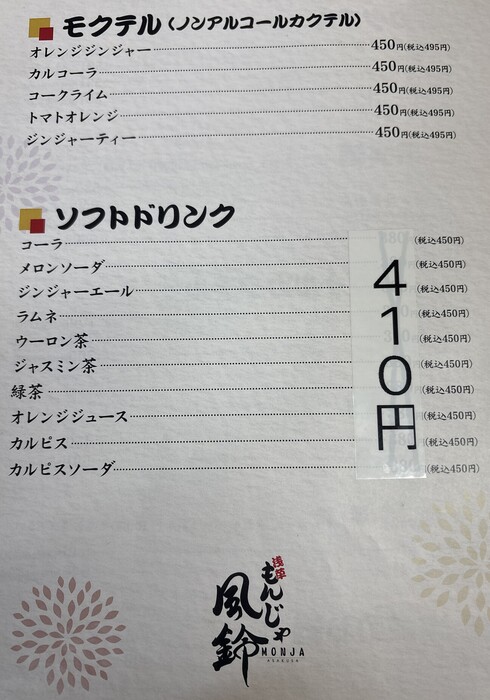 モクテル(ノンアルコールカクテル)
オレンジジンジャー 450円(税込495円)
カルコーラ 450円(税込495円)
コークライム 450円(税込495円)
トマトオレンジ 450円(税込495円)
ジンジャーティー 450円(税込495円)
ソフトドリンク
コーラ (税込450円)
メロンソーダ (税込450円)
ジンジャーエール (税込450円)
ラムネ (税込450円)
ウーロン茶 (税込450円)
ジャスミン茶 (税込450円)
緑茶 (税込450円)
オレンジジュース (税込450円)
カルピス (税込450円)
カルピスソーダ (税込450円)
410円
浅草
もんじゃ
風鈴
MONJA
ASAKUSA